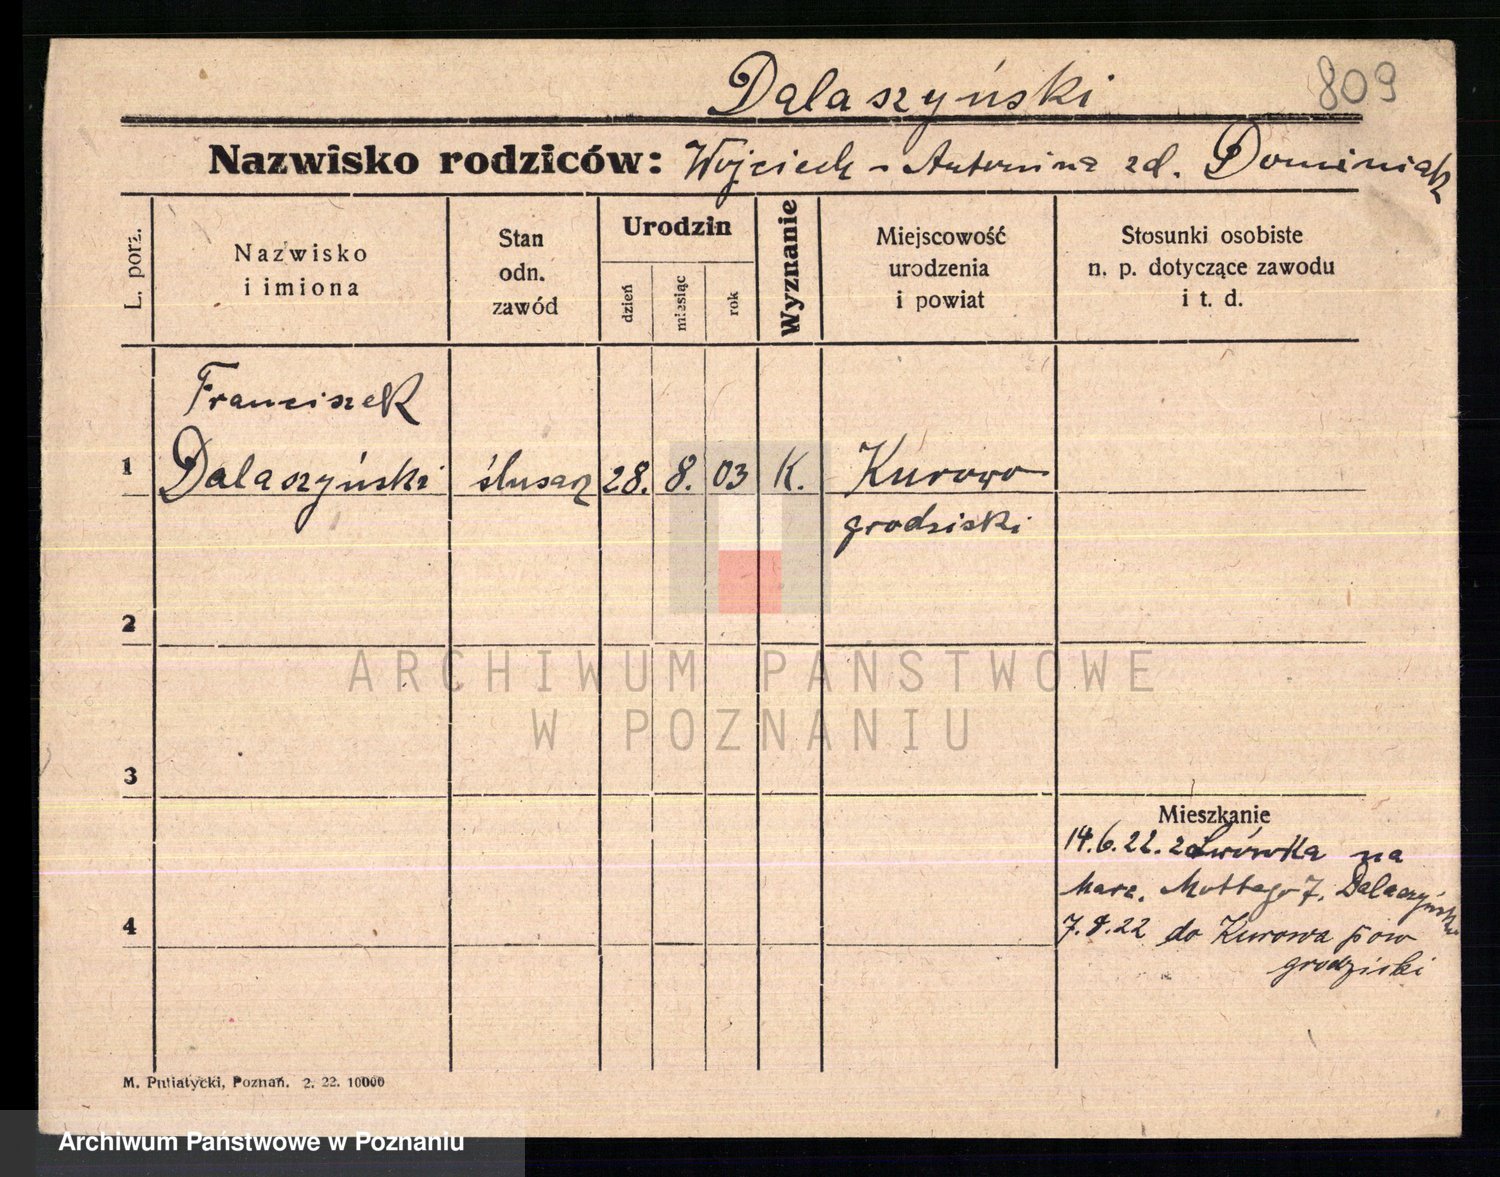 Dalaszyński
809
Nazwisko rodziców: Wojciech - Antonina zd. Dominiak
L. porz.
Nazwisko
i imiona
Stan
odn.
zawód
Urodzin
dzień
miesiąc
rok
Wyznanie
Miejscowość
urodzenia
i powiat
Stosunki osobiste
n. p. dotyczące zawodu
i t. d.
Franciszek
1 Dalaszyński ślusarz 28. 8. 03 K. Kurowo
grodziski
2
ARCHIWUM PAŃSTWOWE
W POZNANIU
3
Mieszkanie
14.6.22. z Lwówka na
Marc. Mottego 7. Dalaszyński
4
7.8.22 do Kurowa pow
grodziski
M. Putiatycki, Poznań. 2. 22. 10000
Archiwum Państwowe w Poznaniu